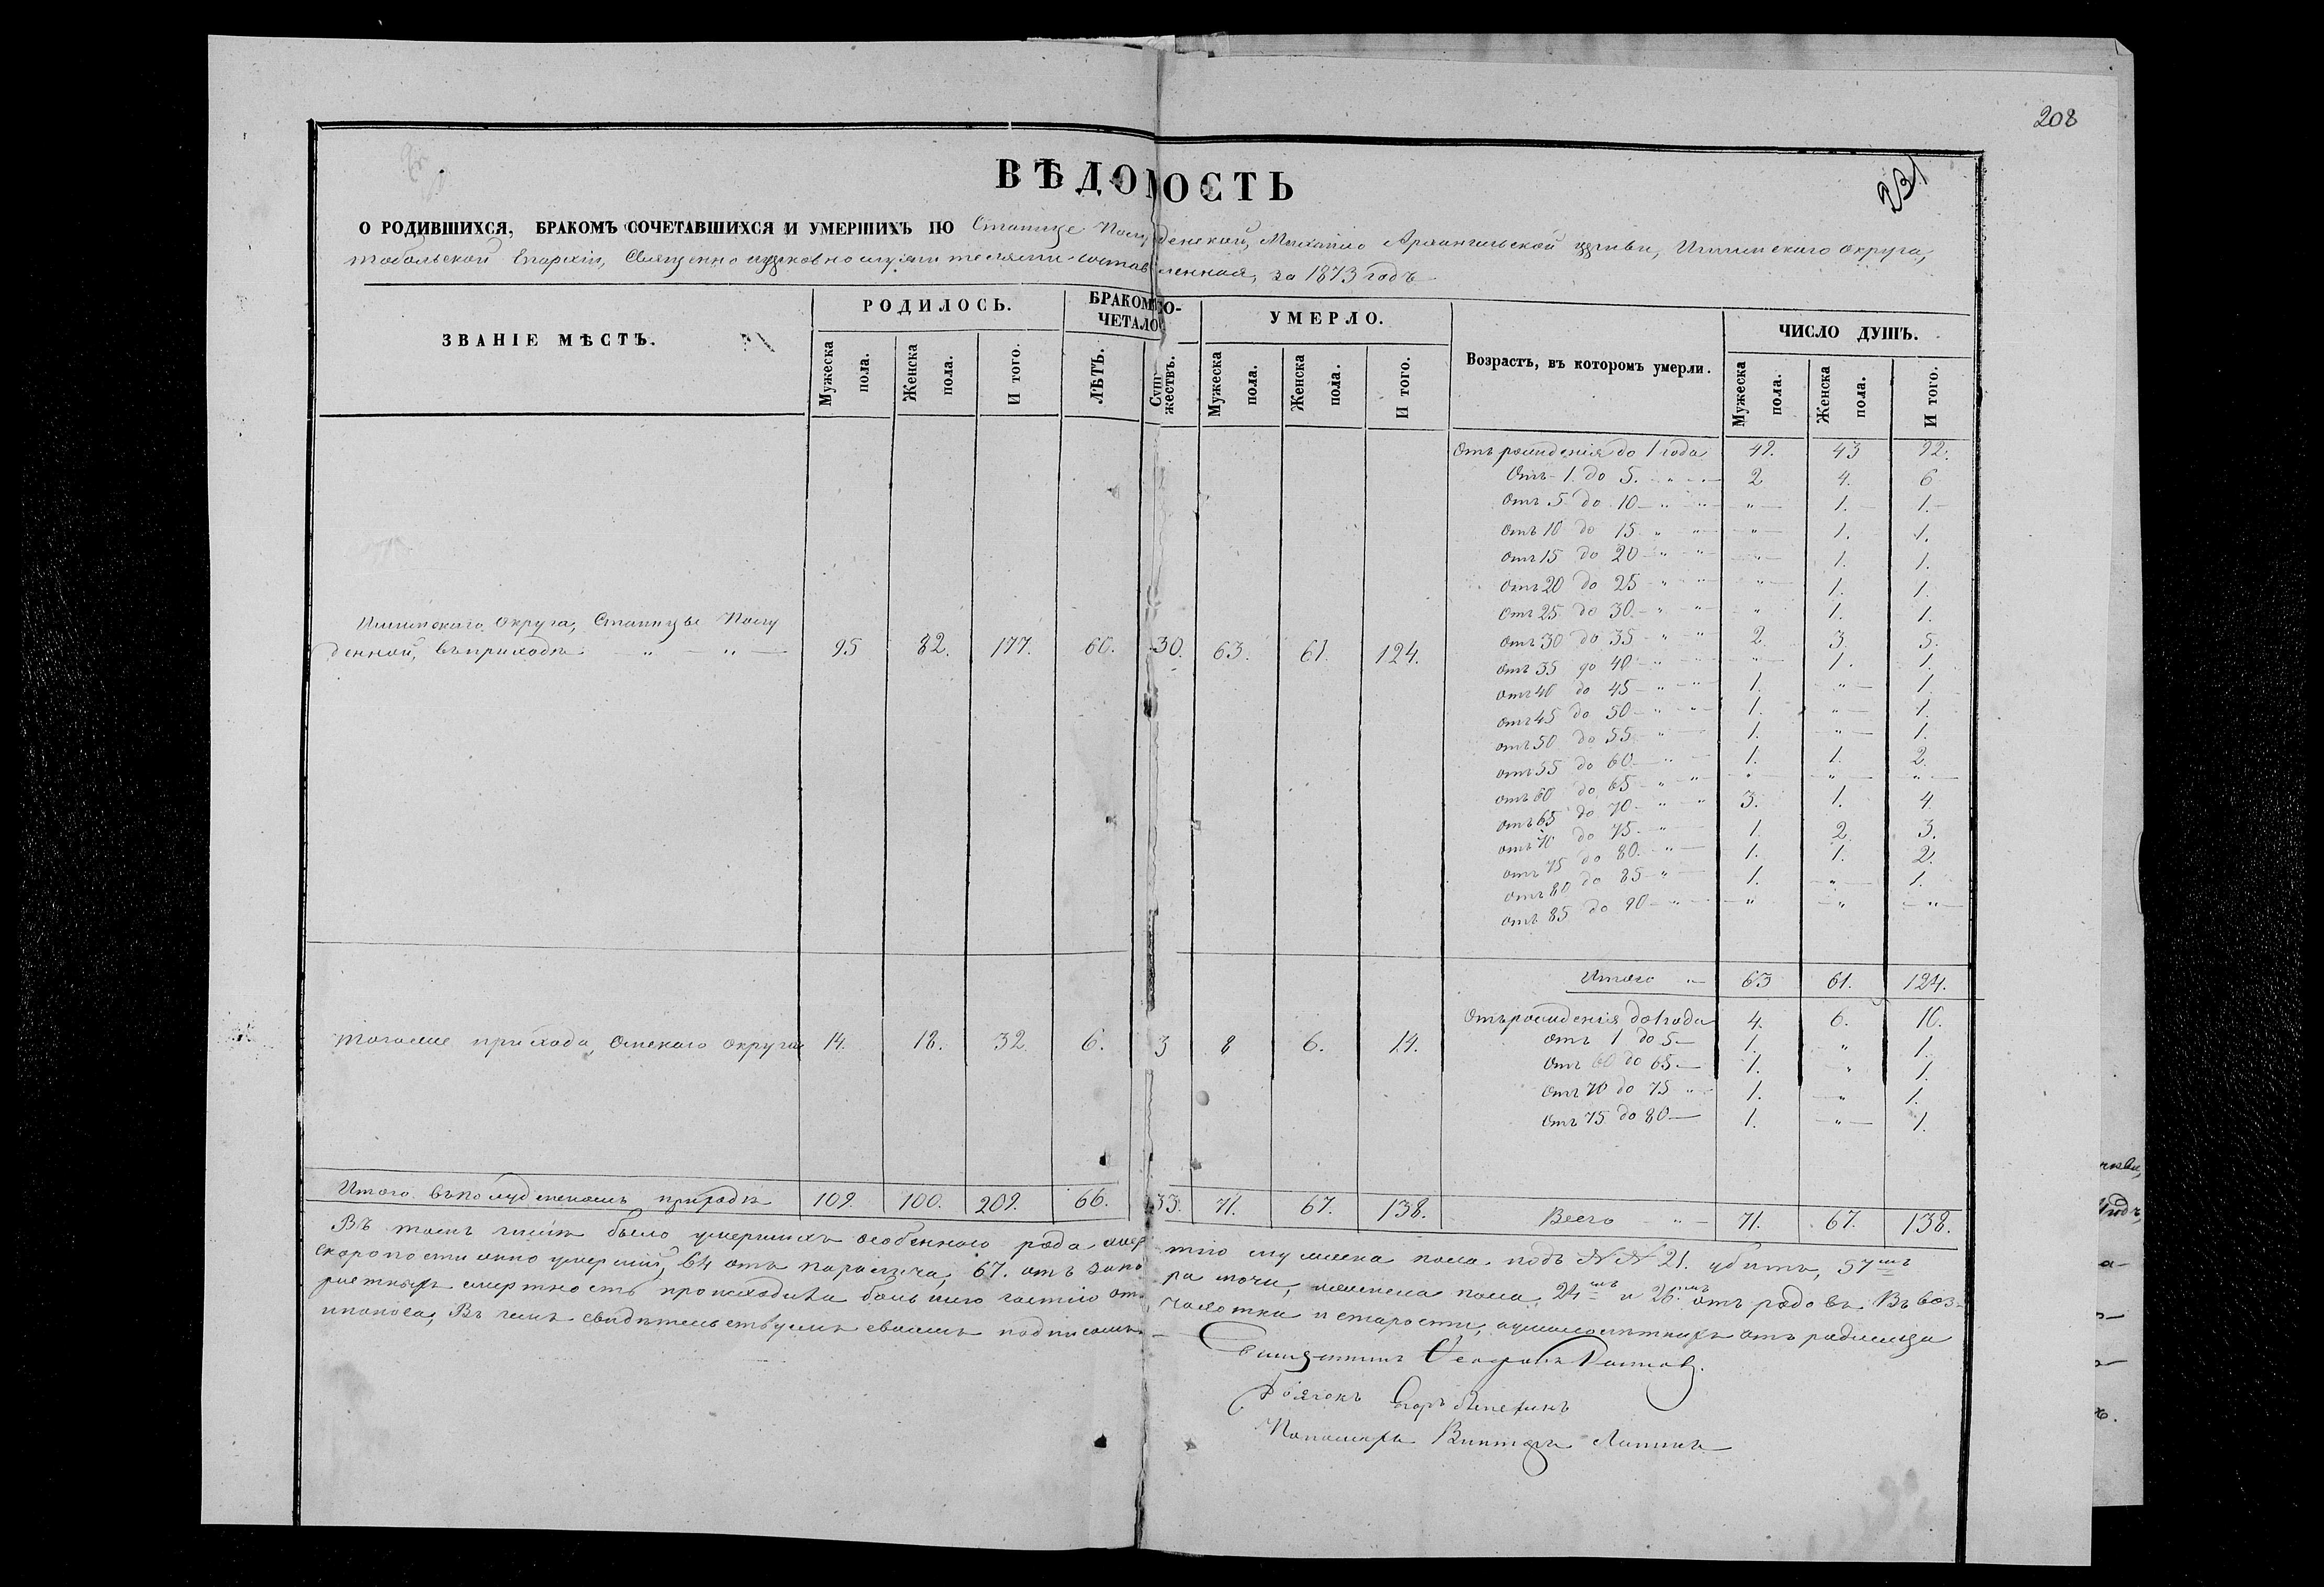 208
231
ВѢДОМОСТЬ
О РОДИВШИХСЯ, БРАКОМЪ СОЧЕТАВШИХСЯ И УМЕРШИХЪ ПО Станице Полуденской, Михайло Архангельской церкви, Ишимскаго округа,
Тобольской Епархіи, Священно церковнослужителями составленная, за 1873 годъ
ЗВАНІЕ МѢСТЪ. РОДИЛОСЬ. БРАКОМЪ СОЧЕТАЛОСЬ УМЕРЛО. Возрастъ, въ которомъ умерли. ЧИСЛО ДУШЪ.
Мужеска пола. Женска пола. И того. ЛѢТЪ. Суп- жествъ. Мужеска пола. Женска пола. И того. Мужеска пола. Женска пола. И того.
Отъ рожденія до 1 года 49. 43 92.
Отъ 1 до 5. 2 4. 6
Отъ 5 до 10 " 1. 1.
Отъ 10 до 15 " 1. 1.
Отъ 15 до 20 " 1. 1.
Отъ 20 до 25 " 1. 1.
Отъ 25 до 30 " 1. 1.
Ишимскаго округа, Станицы Полу
денной, въ приходѣ " " 95 82. 177. 60. 30. 63. 61. 124.
Отъ 30 до 35 2. 3. 5.
Отъ 35 до 40 " 1. 1.
Отъ 40 до 45 1. " 1.
Отъ 45 до 50 1. " 1.
Отъ 50 до 55 1. " 1.
Отъ 55 до 60 1. 1. 2.
Отъ 60 до 65 " " "
Отъ 65 до 70 3. 1. 4.
Отъ 70 до 75 1. 2. 3.
Отъ 75 до 80. 1. 1. 2.
Отъ 80 до 85 1. " 1.
Отъ 85 до 90 " " "
Итого 63 61. 124.
Тогоже прихода, Омскаго округа 14. 18. 32 6. 3 8 6. 14.
Отъ рожденія до 1 года 4. 6. 10.
Отъ 1 до 5 1. " 1.
Отъ 60 до 65 1. " 1.
Отъ 70 до 75 1. " 1.
Отъ 75 до 80 1. " 1.
Итого въ Полуденскомъ приходѣ 109. 100. 209. 66. 33. 71. 67. 138. Всего 71. 67. 138.
Въ томъ числѣ было умершихъ особеннаго рода смертію мужеска пола подъ №№ 21. убитъ, 57мъ
скоропостижно умершій, 64 отъ паралича, 67. отъ запо ра мочи, женска пола 24мъ и 26мъ отъ родовъ. Въ воз-
растныхъ смертность происходила большею частію отъ чахотки и старости, а у малолѣтнихъ отъ родимца
и поноса, Въ чемъ свидѣтельствуемъ своимъ подписомъ
Священникъ
Дьячокъ Егоръ
Пономарь Викторъ